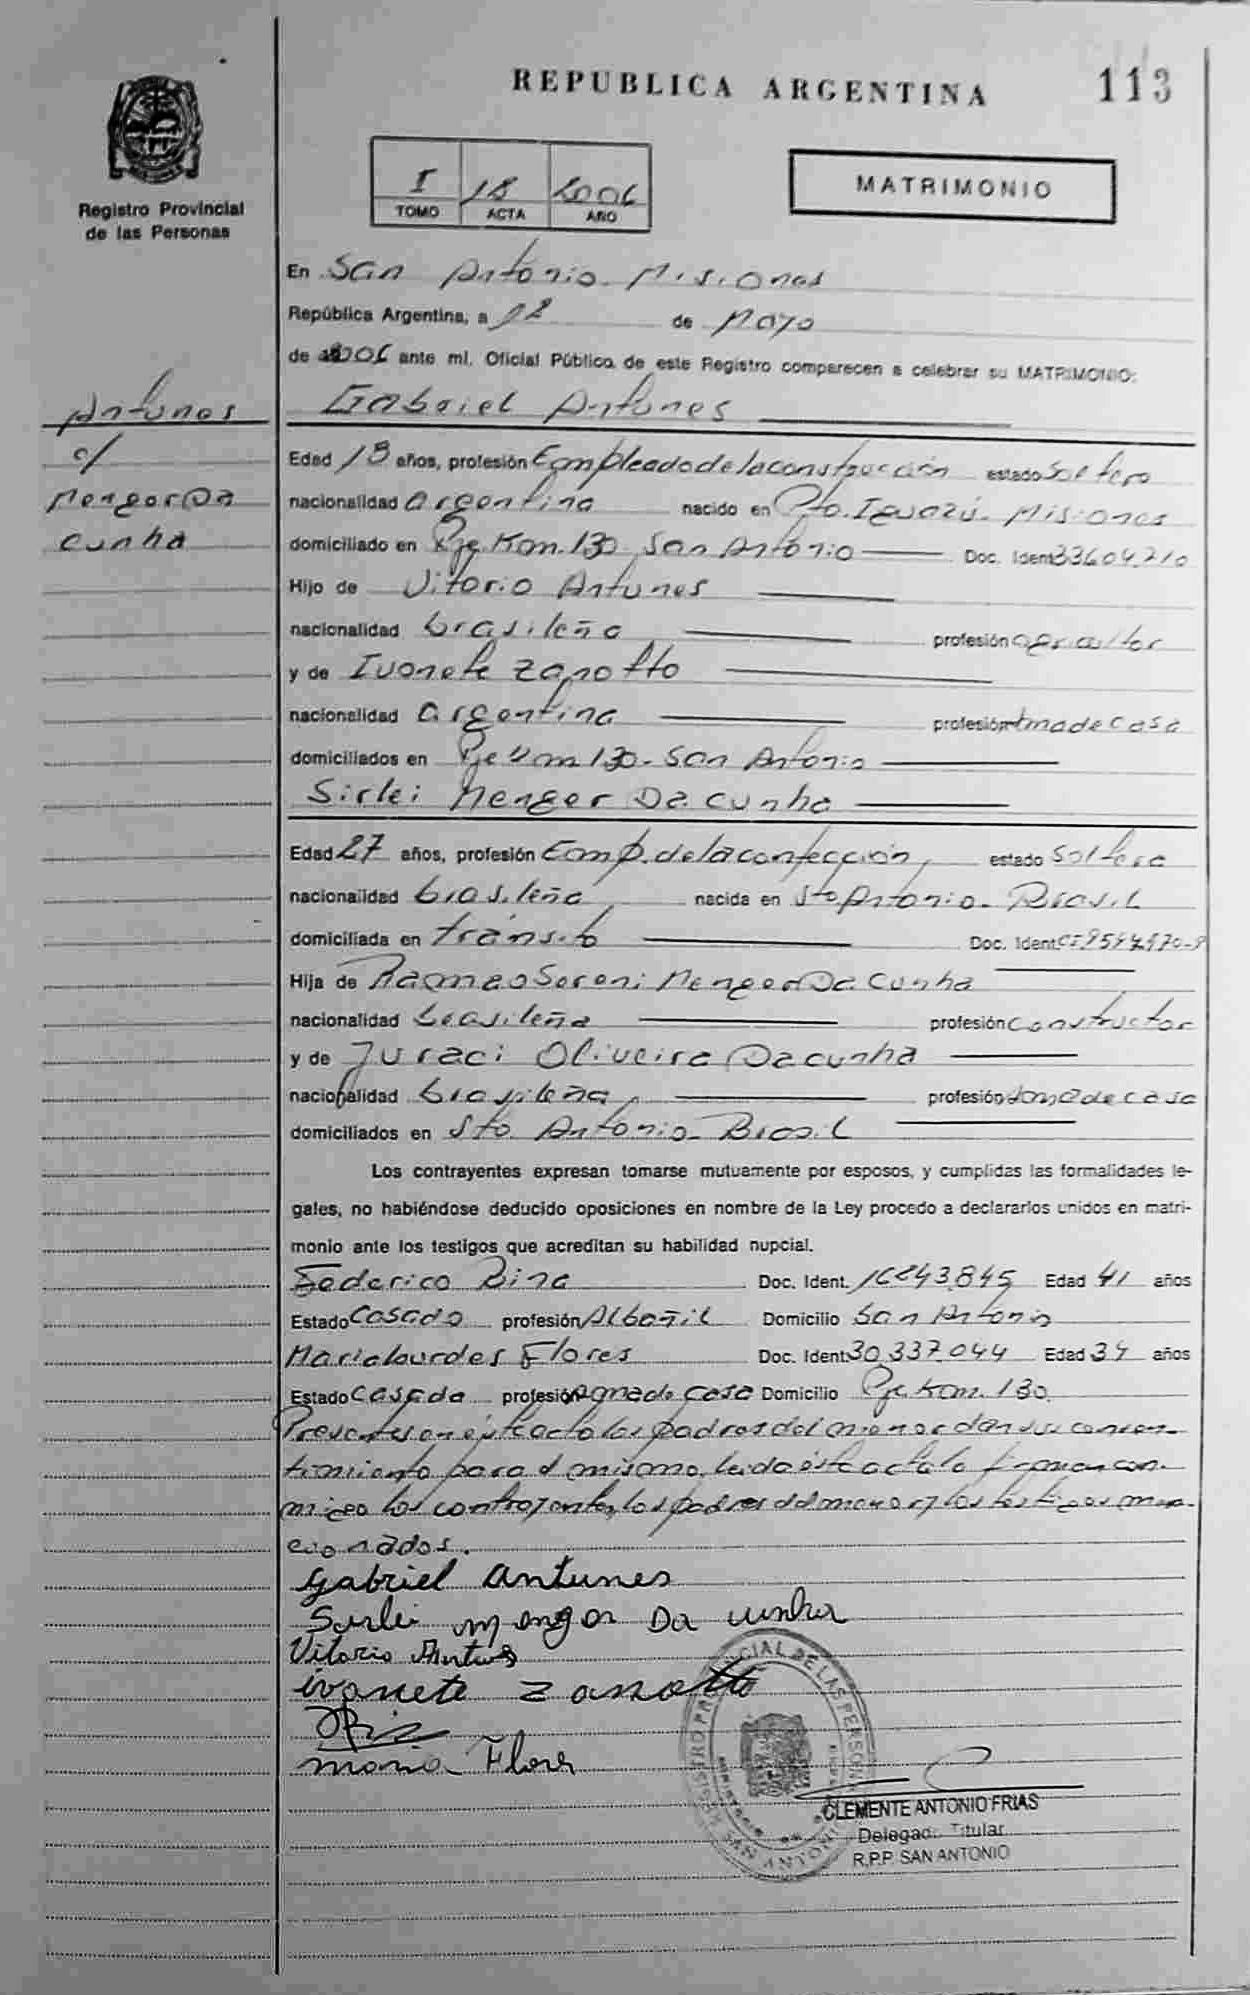 REPUBLICA ARGENTINA
113
Registro Provincial
de las Personas
I 18 2006
TOMO ACTA AÑO
MATRIMONIO
En San Antonio - Misiones
República Argentina, a 12 de Mayo
de 2006 ante mí, Oficial Público de este Registro comparecen a celebrar su MATRIMONIO:
Gabriel Antunes
Antunes
c/
Menger Da
Cunha
Edad 18 años, profesión Empleado de la construcción estado Soltero
nacionalidad argentina nacido en Pto. Iguazú - Misiones
domiciliado en Pje. Km. 130 San Antonio Doc. Ident. 33604210
Hijo de Vitorio Antunes
nacionalidad brasileña profesión agricultor
y de Ivonete Zanotto
nacionalidad argentina profesión Ama de casa
domiciliados en Pje Km 130 - San Antonio
Sirlei Menger Da Cunha
Edad 27 años, profesión Emp. de la confección, estado Soltera
nacionalidad brasileña nacida en Sto Antonio - Brasil
domiciliada en tránsito Doc. Ident.
Hija de Menger Da Cunha
nacionalidad brasileña profesión constructor
y de Juraci Oliveira Da cunha
nacionalidad brasileña, profesión ama de casa
domiciliados en Sto. Antonio - Brasil
Los contrayentes expresan tomarse mutuamente por esposos, y cumplidas las formalidades le-
gales, no habiéndose deducido oposiciones en nombre de la Ley procedo a declararlos unidos en matri-
monio ante los testigos que acreditan su habilidad nupcial.
Federico Doc. Ident. 16843.845 Edad 41 años
Estado Casado profesión Albañil Domicilio San Antonio
Maria Lourdes Flores Doc. Ident. 30.337.044 Edad 34 años
Estado Casada profesión ama de casa Domicilio Pje. Km. 130.
Presentes en éste acto los padres del menor dan su consen-
timiento para el mismo, leída éste acta la firman con-
migo los contrayentes, los padres del menor y los testigos men-
cionados.
Gabriel Antunes
Sirlei Menger Da Cunha
Vitorio Antunes
ivonete Zanotto
Maria Flores
REGISTRO PROVINCIAL DE LAS PERSONAS
SAN ANTONIO
CLEMENTE ANTONIO FRIAS
Delegado Titular
R.P.P. SAN ANTONIO